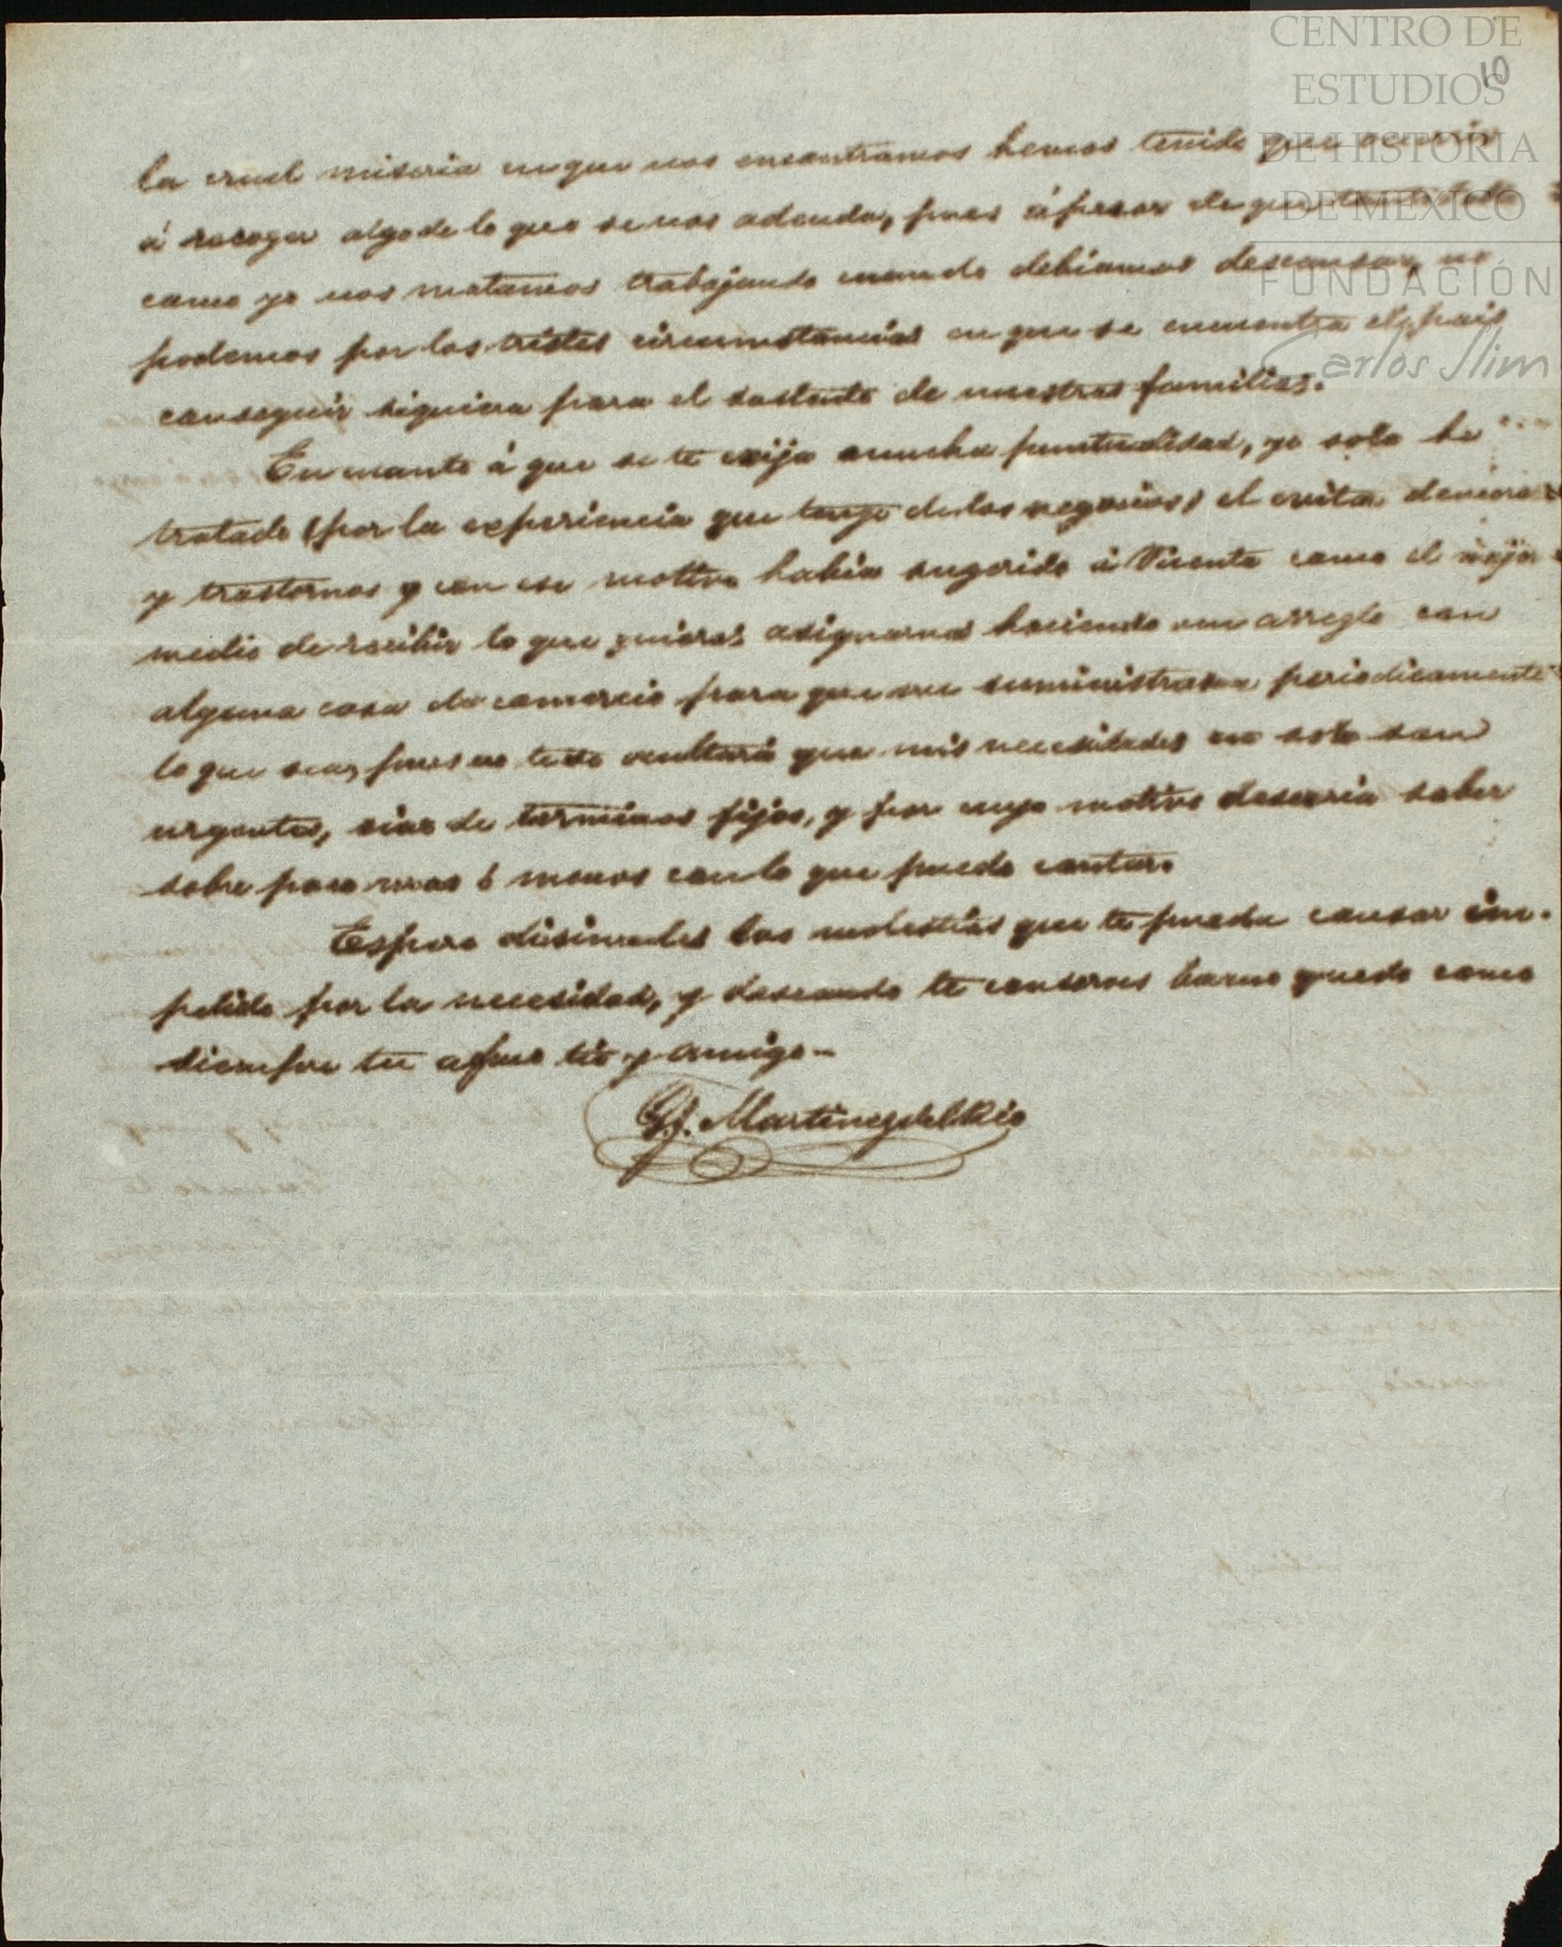 CENTRO DE
ESTUDIOS
DE HISTORIA
DE MEXICO
FUNDACIÓN
Carlos Slim
10
la cruel miseria en que nos encontramos hemos tenido que ocurrir
á recoger algo de lo que se nos adeuda, pues á pesar de que tanto
como yo nos matamos trabajando cuando debiamos descansar, no
podemos por las tristes circumstancias en que se encuentra el pais
conseguir siquiera para el sustento de nuestras familias.
En cuanto á que se te exija mucha puntualidad, yo solo he
tratado (por la experiencia que tengo de los negocios) el evitar demoras
y trastornos y con ese motivo habia sugerido á Vicente como el mejor
medio de recibir lo que quieras asignarnos haciendo un arreglo con
alguna casa de comercio para que me suministrara periodicamente
lo que sea, pues no te se ocultará que mis necesidades no solo son
urgentes, sino de terminos fijos, y por cuyo motivo desearia saber
sobre poco mas ó menos con lo que puedo contar.
Espero disimules las molestias que te pueda causar im-
pelido por la necesidad, y deseando te conserves bueno quedo como
siempre tu afmo tio y amigo-
G. Martinez del Rio